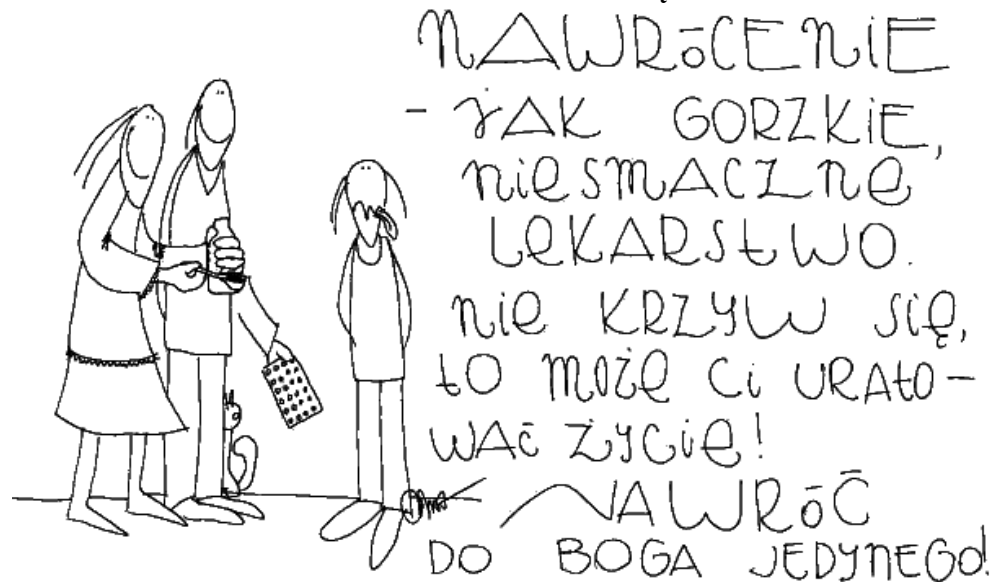 NAWRÓCENIE
- JAK GORZKIE,
NIESMACZNE
LEKARSTWO.
NIE KRZYW SIĘ,
TO MOŻE CI URATO-
WAĆ ŻYCIE!
NAWRÓĆ
DO BOGA JEDYNEGO!